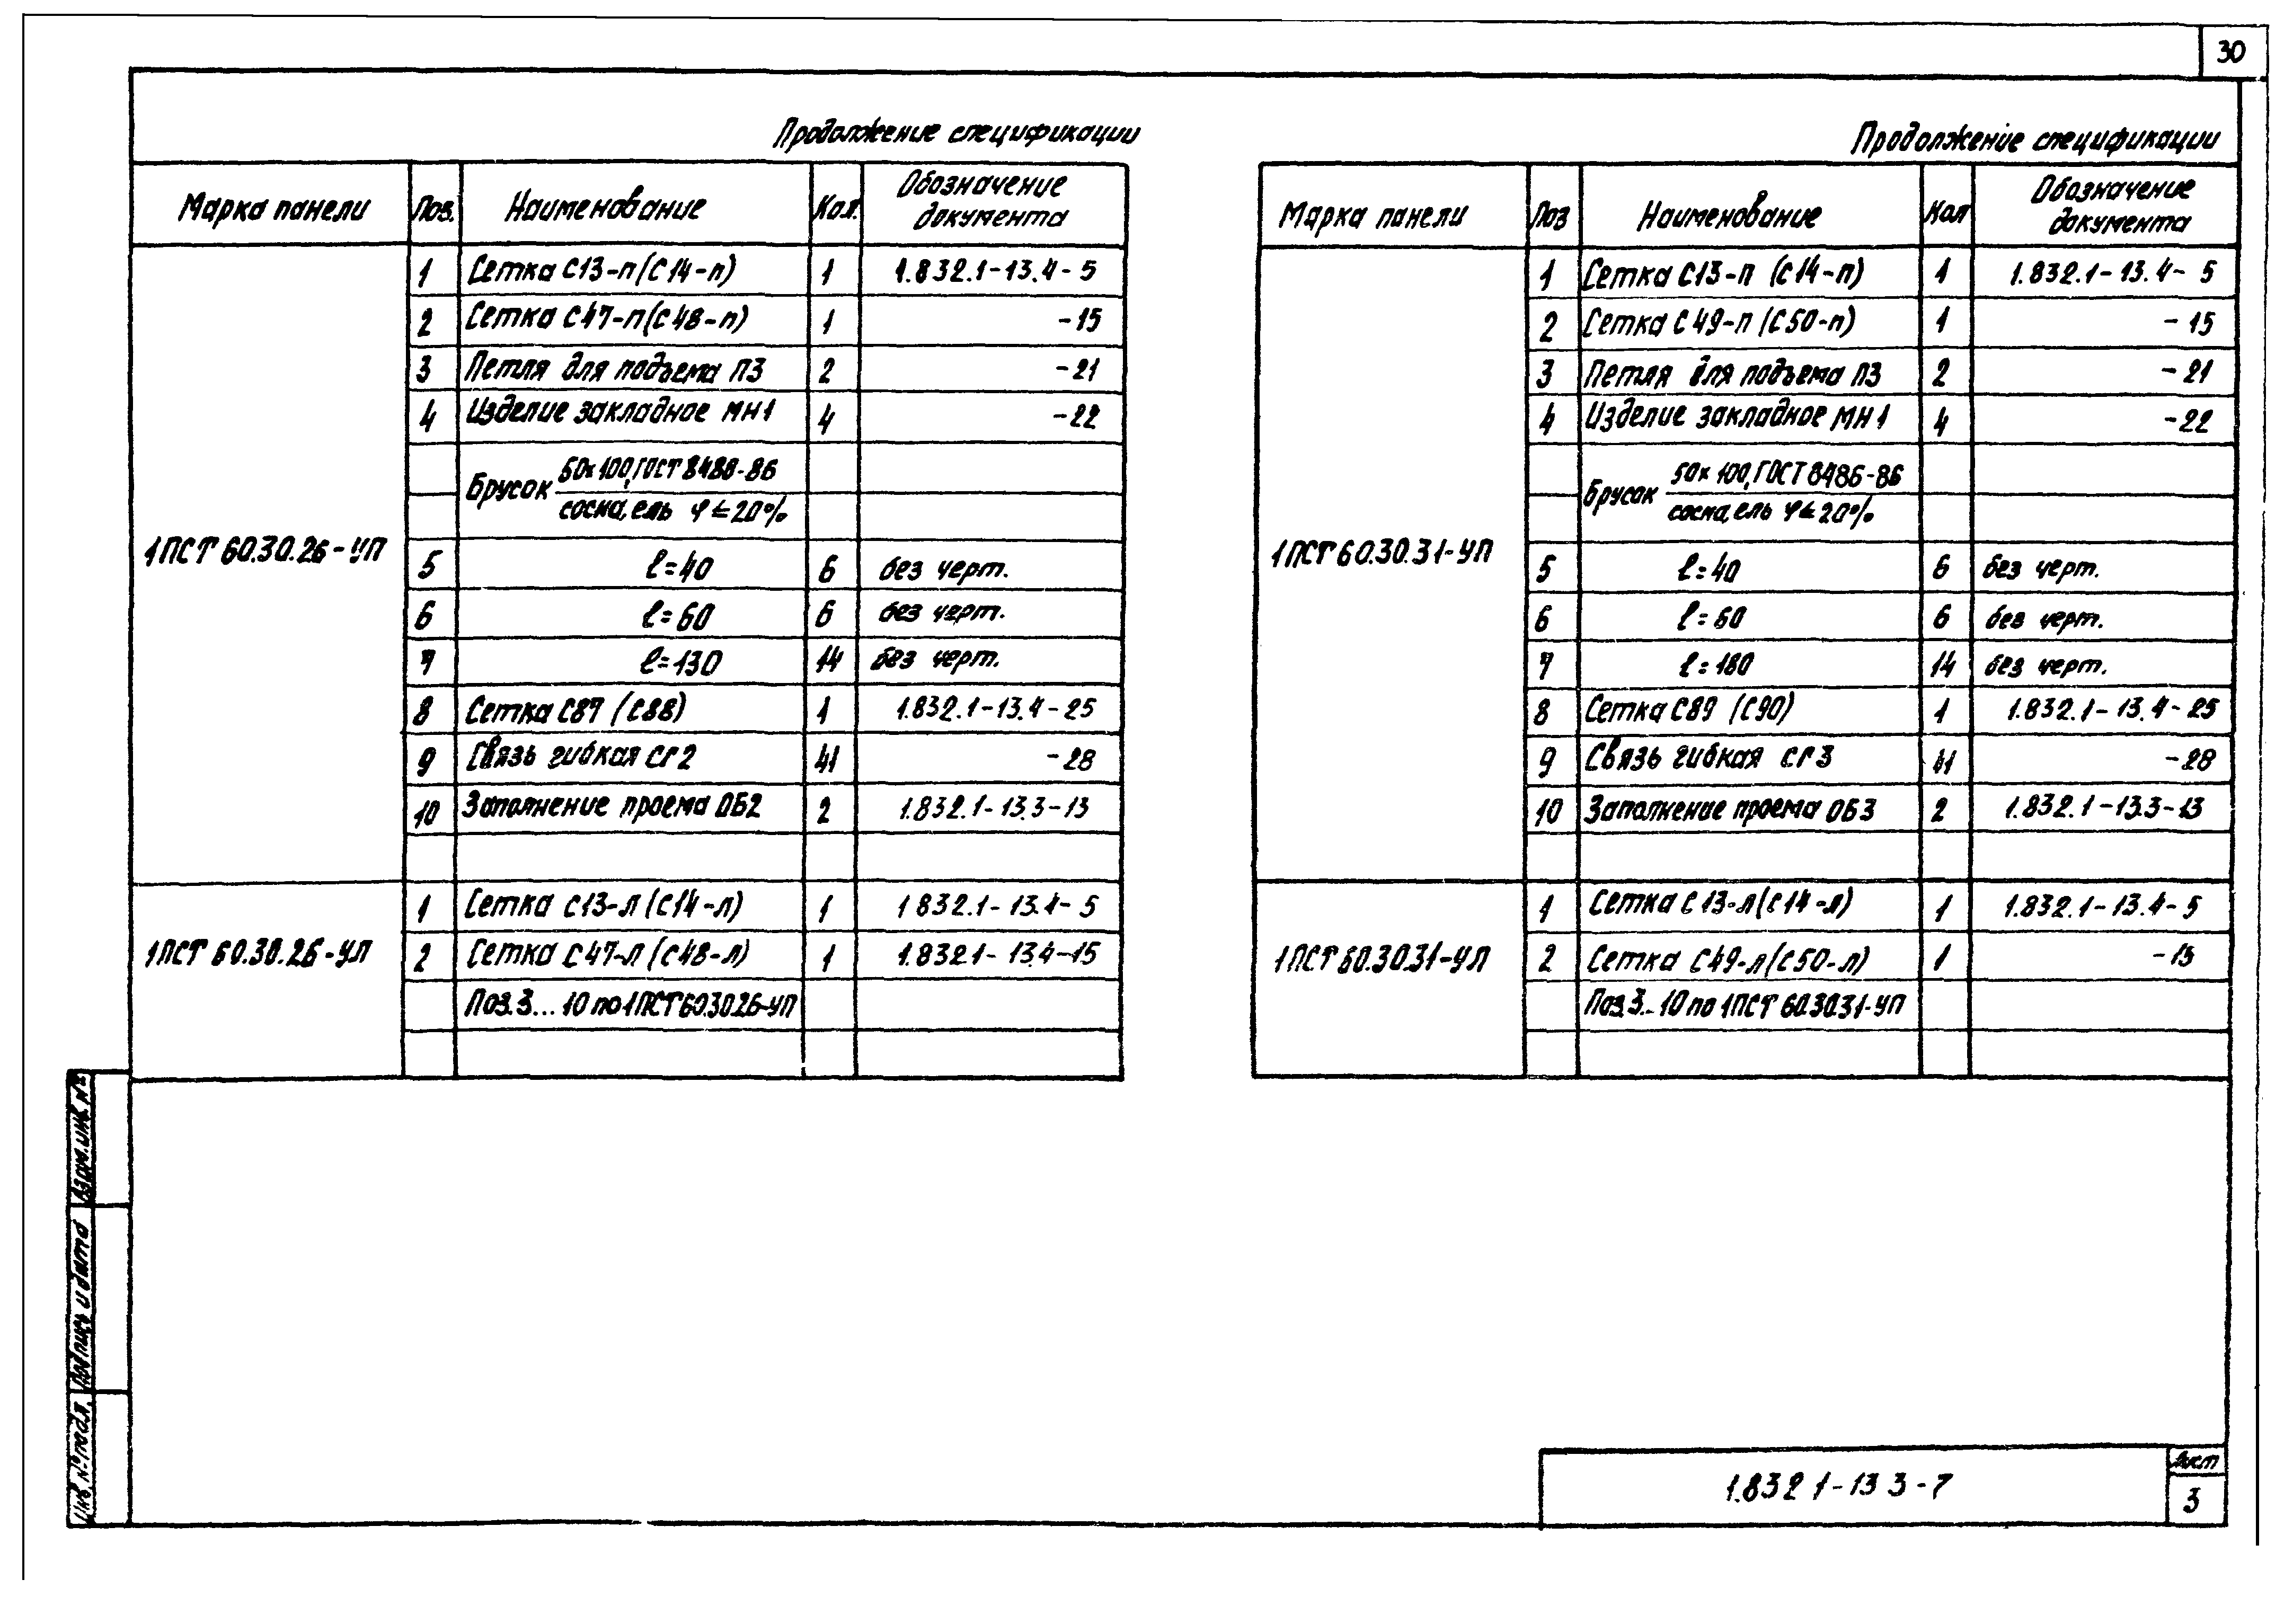 30
Продолжение спецификации
Марка панели Поз. Наименование Кол. Обозначение документа
1ПСТ 60.30.26-УП
1 Сетка С13-п (С14-п) 1 1.832.1-13.4-5
2 Сетка С47-п (С48-п) 1 -15
3 Петля для подъема П3 2 -21
4 Изделие закладное МН1 4 -22
Брусок 50х100, ГОСТ 8486-86
сосна, ель φ≤20%
5 ℓ=40 6 без черт.
6 ℓ=60 6 без черт.
7 ℓ=130 14 без черт.
8 Сетка С87 (С88) 1 1.832.1-13.4-25
9 Связь гибкая СГ2 41 -28
10 Заполнение проема ОБ2 2 1.832.1-13.3-13
1ПСТ 60.30.26-УЛ
1 Сетка С13-л (С14-л) 1 1 832.1-13.4-5
2 Сетка С47-л (С48-л) 1 1.832.1-13.4-15
Поз. 3...10 по 1ПСТ 60.30.26-УП
Продолжение спецификации
Марка панели Поз Наименование Кол Обозначение документа
1ПСТ 60.30.31-УП
1 Сетка С13-п (С14-п) 1 1.832.1-13.4-5
2 Сетка С49-п (С50-п) 1 -15
3 Петля для подъема П3 2 -21
4 Изделие закладное МН1 4 -22
Брусок 50х100, ГОСТ 8486-86
сосна, ель φ≤20%
5 ℓ=40 6 без черт.
6 ℓ=60 6 без черт.
7 ℓ=180 14 без черт.
8 Сетка С89 (С90) 1 1.832.1-13.4-25
9 Связь гибкая СГ3 41 -28
10 Заполнение проема ОБ3 2 1.832.1-13.3-13
1ПСТ 60.30.31-УЛ
1 Сетка С13-л (С14-л) 1 1.832.1-13.4-5
2 Сетка С49-л (С50-л) 1 -15
Поз. 3...10 по 1ПСТ 60.30.31-УП
Взам. инв. №
Подпись и дата
Инв. № подл.
1.832 1-13 3-7
Лист
3